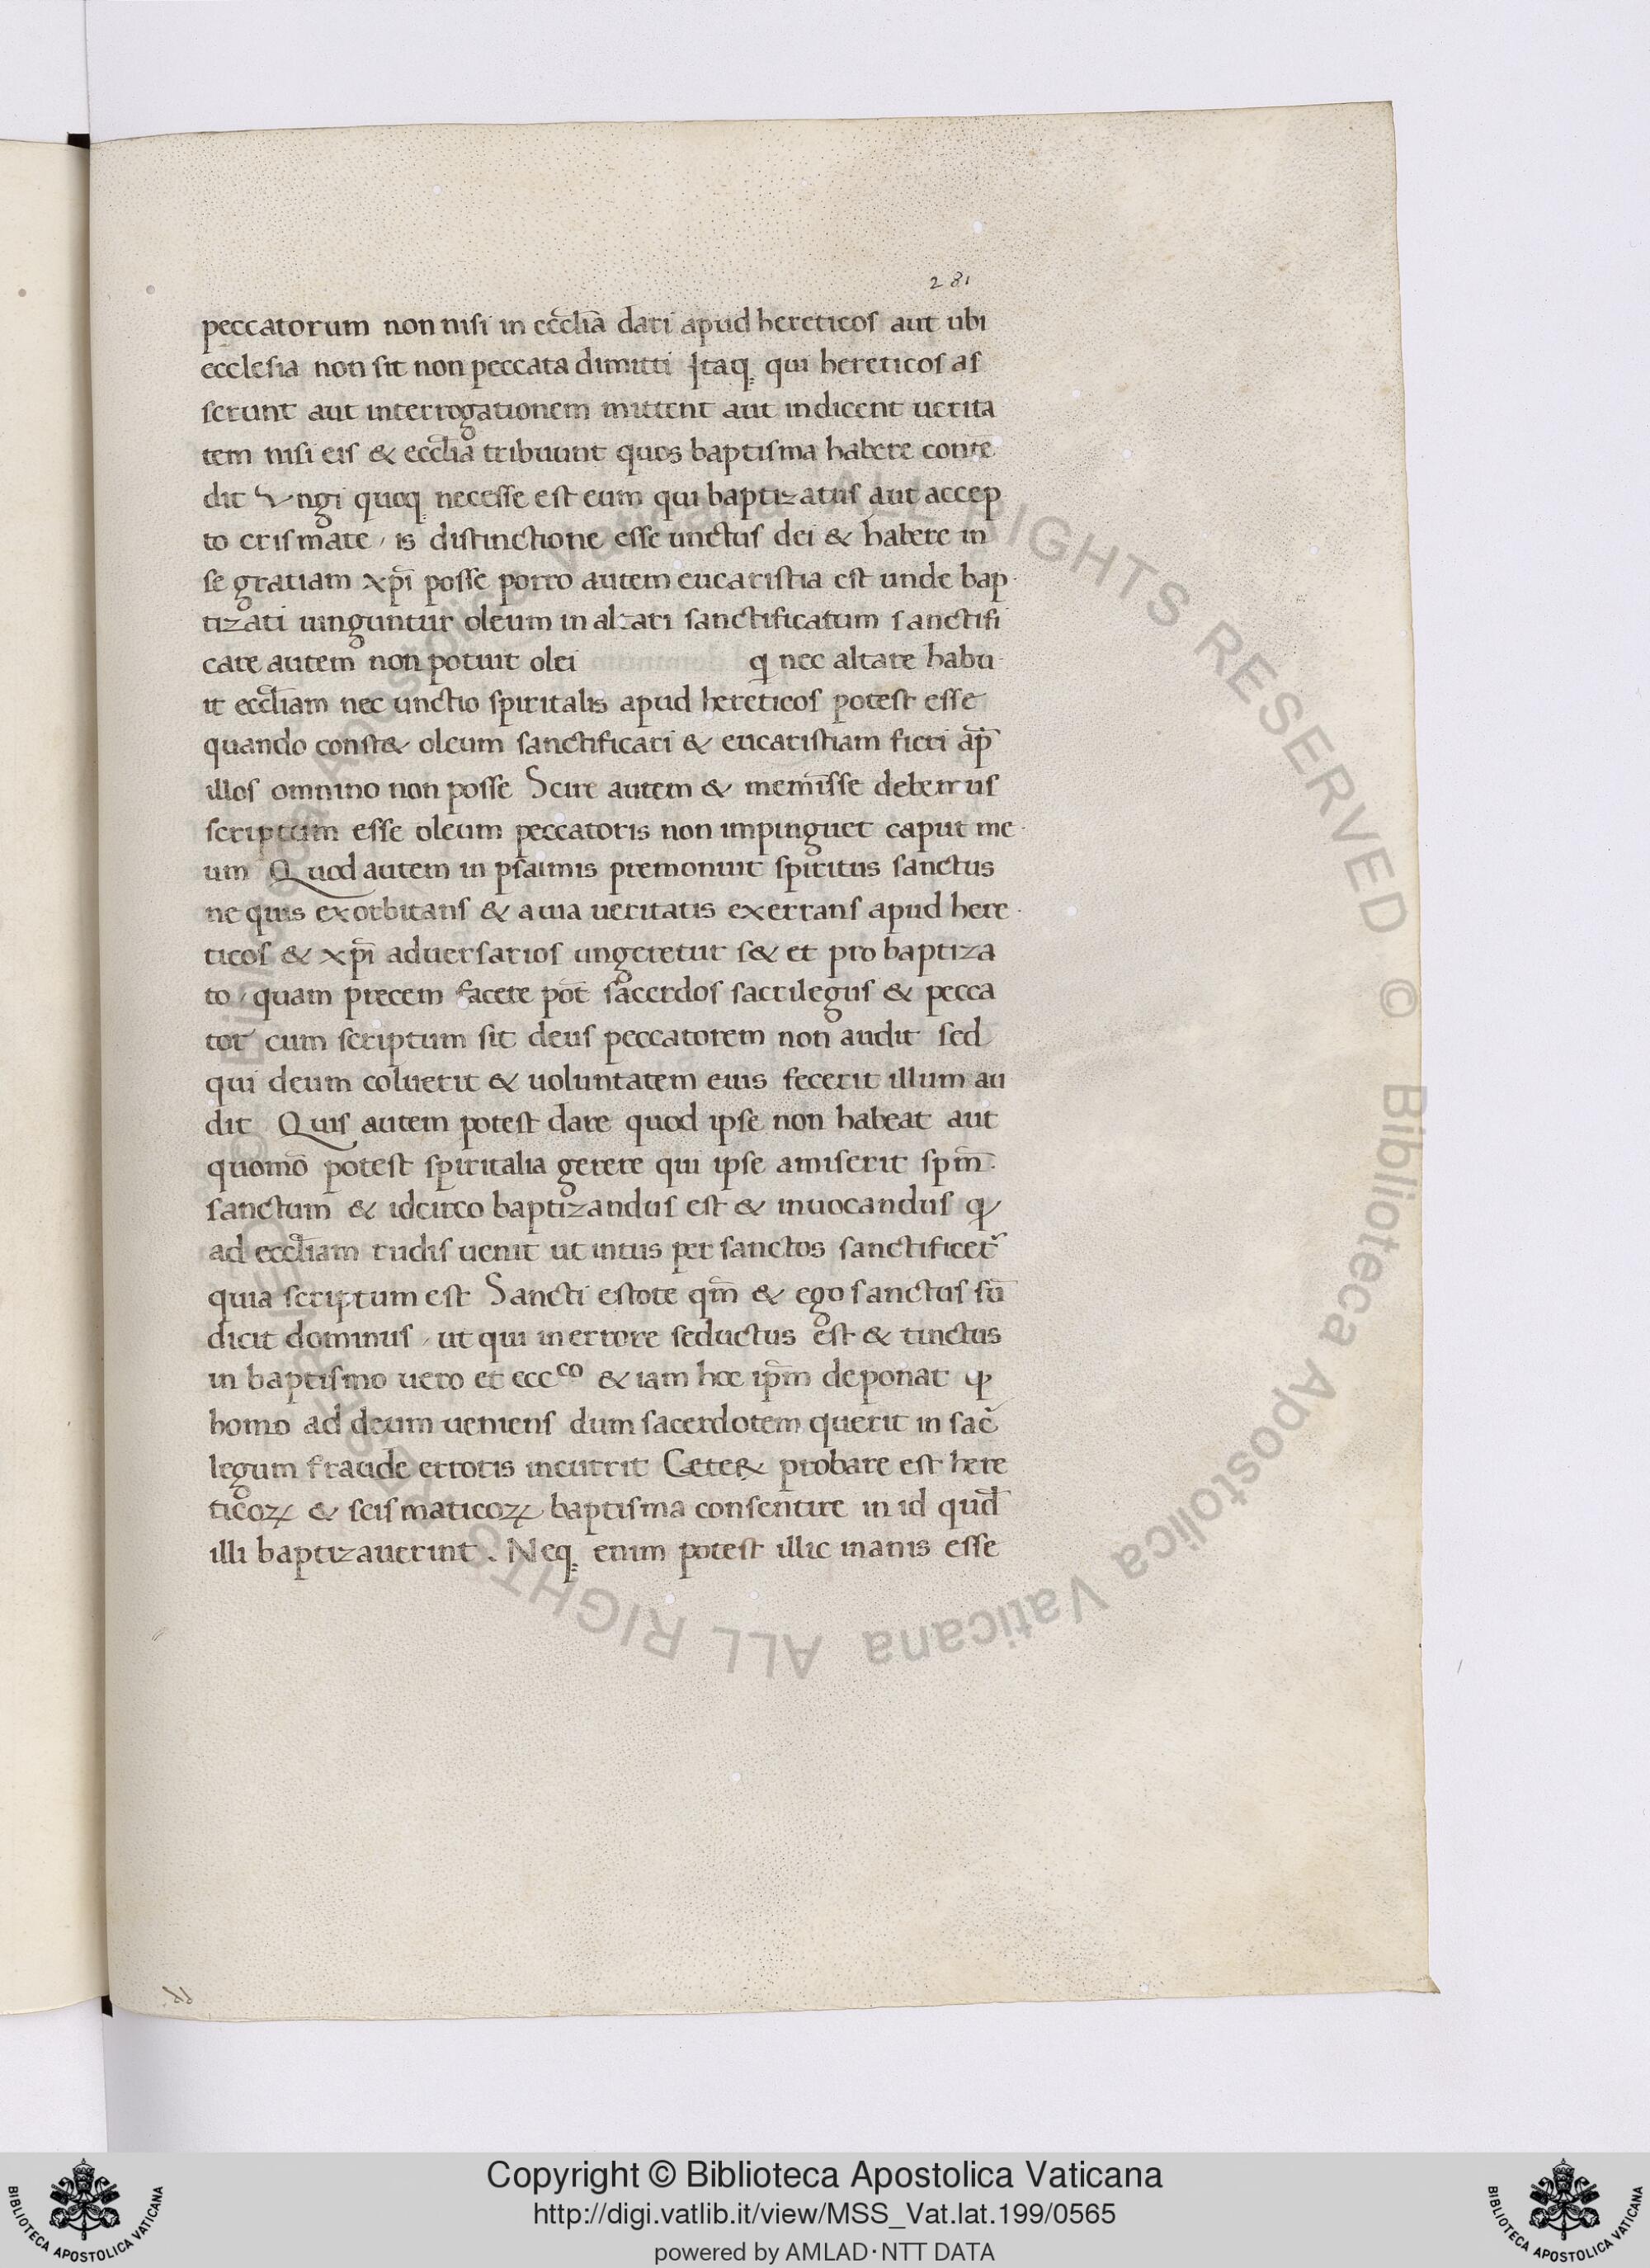 281
peccatorum non nisi in eccl̄ia dari apud hereticos aut ubi
ecclesia non sit non peccata dimitti Itaq; qui hereticos as
serunt aut interrogationem mittent aut indicent uerita
tem nisi eis & eccl̄ia tribuunt quos baptisma habere contē
dit Vngi quoq; necesse est eum qui baptizatus aut accep
to crismate, is distinctione esse unctus dei & habere in
se gratiam xp̄i posse porro autem eucaristia est unde bap
tizati uinguntur oleum in altari sanctificatum sanctifi
care autem non potuit olei q nec altare habu
it eccl̄iam nec unctio spiritalis apud hereticos potest esse
quando const& oleum sanctificari & eucaristiam fieri ap̄
illos omnino non posse Scire autem & memīsse debemus
scriptum esse oleum peccatoris non impinguet caput me
um Quod autem in psalmis premonuit spiritus sanctus
ne quis exorbitans & a uia ueritatis exerrans apud here
ticos & xp̄i aduersarios ungeretur s& et pro baptiza
to, quam precem facere pōt sacerdos sacrilegus & pecca
tor cum scriptum sit deus peccatorem non audit sed
qui deum coluerit & uoluntatem eius fecerit illum au
dit Quis autem potest dare quod ipse non habeat aut
quomō potest spiritalia gerere qui ipse amiserit sp̄m
sanctum & idcirco baptizandus est & inuocandus q
ad eccl̄iam rudis uenit ut intus per sanctos sanctificet᷑
quia scriptum est Sancti estote qm̄ & ego sanctus sū
dicit dominus, ut qui in errore seductus est & tinctus
in baptismo uero et eccᶜᵒ & iam hoc ip̄m deponat ꝙ
homo ad deum ueniens dum sacerdotem querit in sac̄
legum fraude erroris incurrit Ceteꝝ probare est here
ticoꝝ & scismaticoꝝ baptisma consentire in id qud̄
illi baptizauerint. Neq; enim potest illic inanis esse
© Biblioteca Apostolica Vaticana ALL RIGHTS RESERVED © Biblioteca Apostolica Vaticana ALL RIGHTS RESERVED
Copyright © Biblioteca Apostolica Vaticana
http://digi.vatlib.it/view/MSS_Vat.lat.199/0565
powered by AMLAD·NTT DATA
BIBLIOTECA APOSTOLICA VATICANA
BIBLIOTECA APOSTOLICA VATICANA